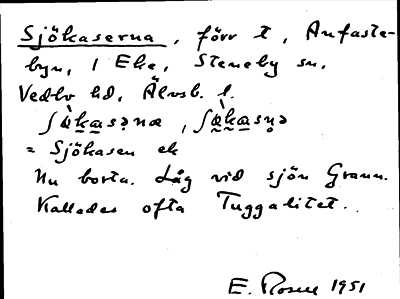 Sjökaserna, förr t, Anfaste-
byn, 1 Eke, Steneby sn,
Vedbo hd, Älvsb. l.
ʃö̀kasəna, ʃö̀kasn̥ə
= Sjökasen ek
Nu borta. Låg vid sjön Grann.
Kallades ofta Tuggalitet.
E. Rosell 1951